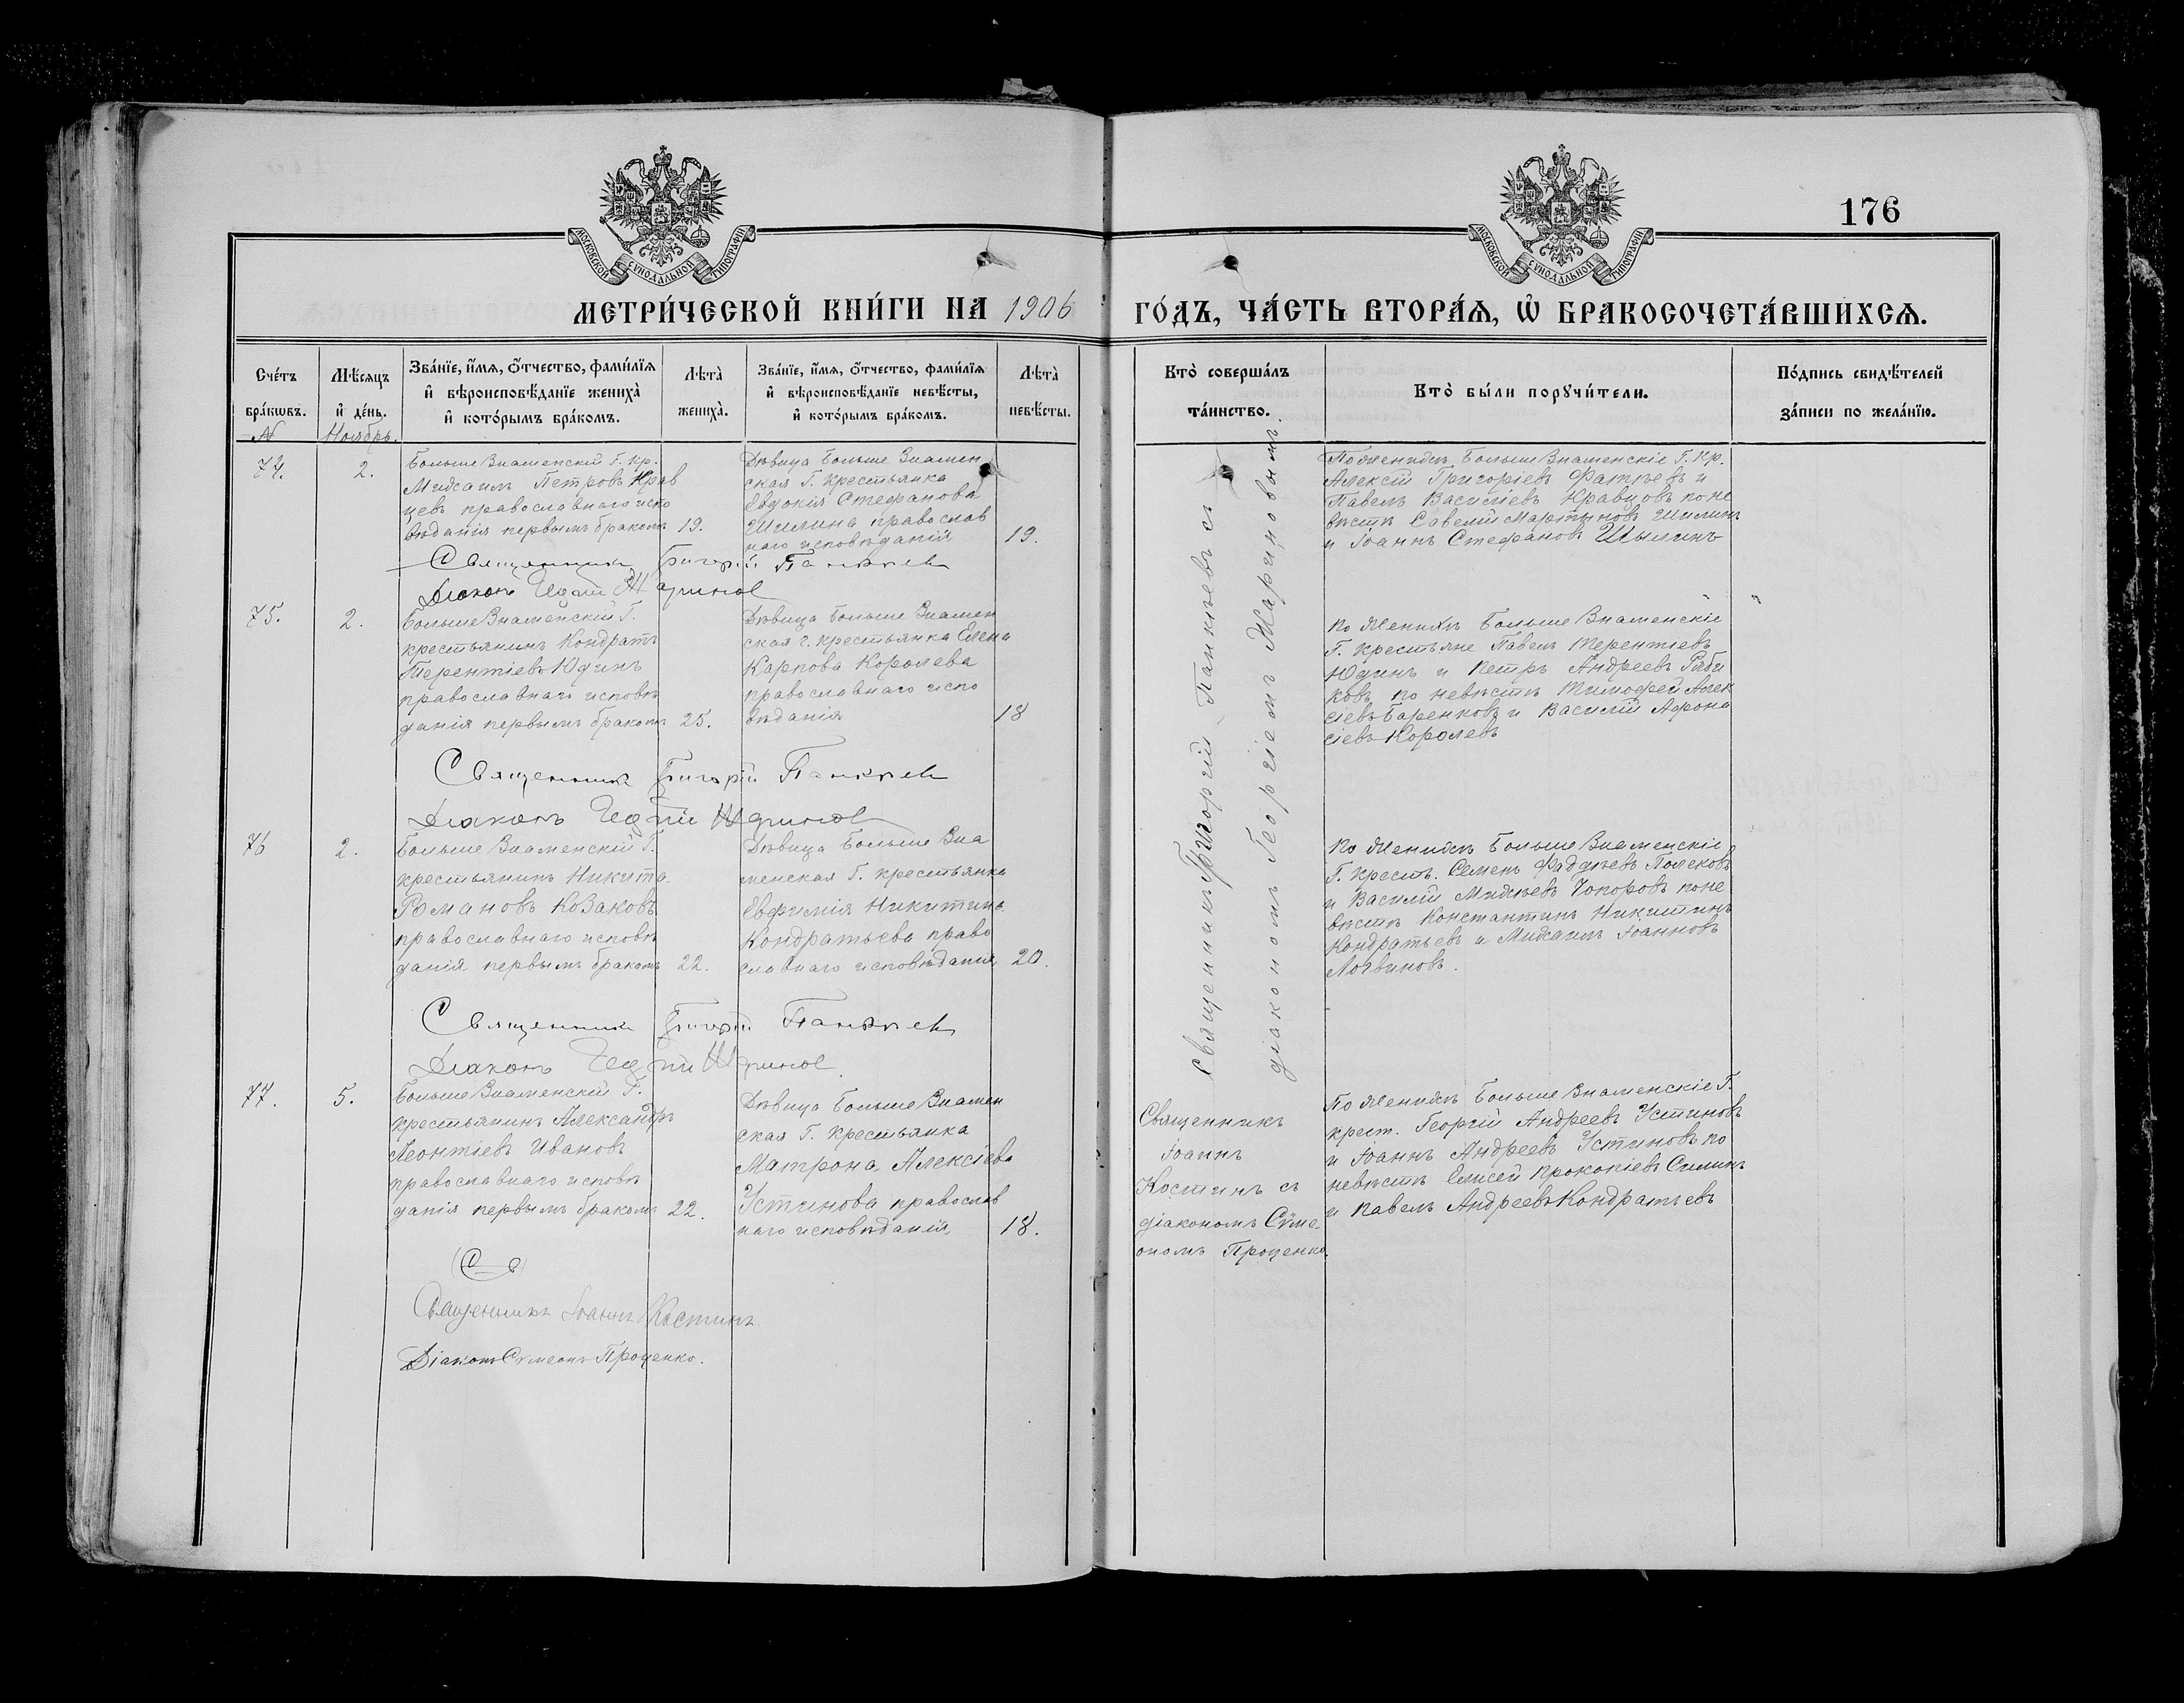 176
МОСКОВСКОЙ СѴНОДАЛЬНОЙ ТИПОГРАФІИ
МОСКОВСКОЙ СѴНОДАЛЬНОЙ ТИПОГРАФІИ
МЕТРИ́ЧЕСКОЙ КНИ́ГИ НА 1906 ГО́ДЪ, ЧА́СТЬ ВТОРА́Я, Ѡ҆ БРАКОСОЧЕТА́ВШИХСѦ.
Сче́тъ бра́кѡвъ.
№
Мѣ́сяцъ и҆ де́нь.
Ноябрь.
Зва́нїе, и҆́мѧ, ѻ҆́тчество, фами́лїѧ
и҆ вѣроисповѣ́данїе жениха̀
и҆ кото́рымъ бра́комъ.
Лѣта̀ жениха̀.
Зва́нїе, и҆́мѧ, ѻ҆́тчество, фами́лїѧ
и҆ вѣроисповѣ́данїе невѣ́сты,
и҆ кото́рымъ бра́комъ.
Лѣта̀ невѣ́сты.
Кто̀ соверша́лъ та́инство.
Кто̀ бы́ли порꙋчи́тели.
По́дпись свидѣ́телей
за́писи по жела́нїю.
74.
2.
Больше Знаменскій Г. Кр.
Михаилъ Петровъ Крав
цевъ православнаго испо
вѣданія первымъ бракомъ
19.
Дѣвица Больше Знамен
ская Г. крестьянка
Евдокія Стефанова
Шилина православ
наго исповѣданія
19.
Поженихѣ Больше Знаменскіе Г. Кр.
Алексій Григоріевъ Фатѣевъ и
Павелъ Василіевъ Кравцовъ по не
вѣстѣ Савелій Мартыновъ Шилинъ
и Іоаннъ Стефановъ Шылинъ
Священникъ Григорій Панкѣев
Діаконъ Георгій Жариновъ
75.
2.
Больше Знаменскій Г.
крестьянинъ Кондратъ
Терентіевъ Юдинъ
православнаго исповѣ
данія первымъ бракомъ
25.
Дѣвица Больше Знамен
ская г. крестьянка Елена
Карпова Королева
православнаго испо
вѣданія
18
По женихѣ Больше Знаменскіе
Г. крестьяне Павелъ Терентіевъ
Юдинъ и Петръ Андреевъ Ряби
ковъ по невѣстѣ Тимофей Алек
сіевъ Баренковъ и Василій Афона
сіевъ Королевъ
Священникъ Григорій Панкѣев
Діаконъ Георгій Жариновъ
76
2.
Больше Знаменскій Г.
крестьянинъ Никита
Романовъ Козаковъ
православнаго исповѣ
данія первымъ бракомъ
22.
Дѣвица Больше Зна
менская Г. крестьянка
Евфимія Никитина
Кондратьева право
славнаго исповѣданія
20.
По женихѣ Больше Знаменскіе
Г. Крест. Семенъ Фаддѣевъ Поляковъ
и Василій Михѣевъ Топоровъ по не
вѣстѣ Константинъ Никитинъ
Кондратьевъ и Михаилъ Іоанновъ
Логвиновъ.
Священникъ Григорій Панкѣев
Діаконъ Георгій Жариновъ
Священникъ Григорій Панкѣевъ съ
діакономъ Георгіемъ Жариновымъ.
77.
5.
Больше Знаменскій Г.
крестьянинъ Александръ
Леонтіевъ Ивановъ
православнаго исповѣ
данія первымъ бракомъ
22.
Дѣвица Больше Знамен
ская Г. крестьянка
Матрона Алексіева
Устинова православ
наго исповѣданія,
18.
Священникъ
Іоаннъ
Костинъ съ
діакономъ Сѵме-
ономъ Проценко.
По женихѣ Больше Знаменскіе Г.
крест. Георгій Андреевъ Устиновъ
и Іоаннъ Андреевъ Устиновъ по
невѣстѣ Елисей Прокопіевъ Силинъ
и Павелъ Андреевъ Кондратьевъ
Священникъ Іоаннъ Костинъ
Діаконъ Сѵмеонъ Проценко.